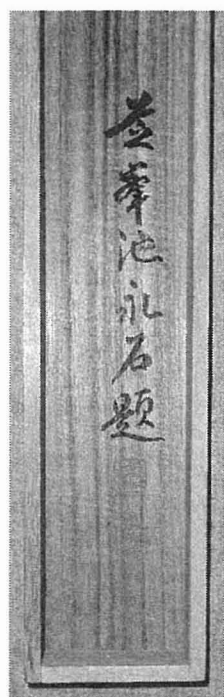 益峯池永石題